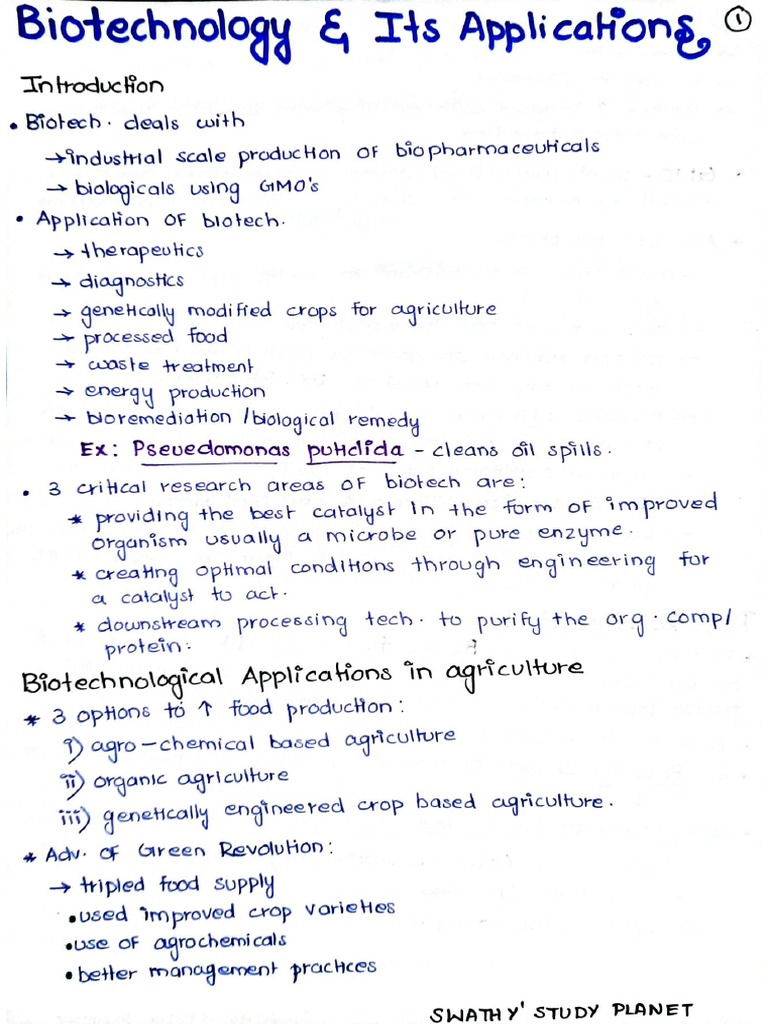 Biotechnology & Its Applications 1
Introduction
• Biotech. deals with
→ industrial scale production of biopharmaceuticals
→ biologicals using GMO's
• Application of biotech.
→ therapeutics
→ diagnostics
→ genetically modified crops for agriculture
→ processed food
→ waste treatment
→ energy production
→ bioremediation / biological remedy
Ex: Pseuedomonas puticlida - cleans oil spills.
• 3 critical research areas of biotech are:
* providing the best catalyst in the form of improved
organism usually a microbe or pure enzyme.
* creating optimal conditions through engineering for
a catalyst to act.
* downstream processing tech. to purify the org. comp/
protein.
Biotechnological Applications in agriculture
* 3 options to ↑ food production:
i) agro-chemical based agriculture
ii) organic agriculture
iii) genetically engineered crop based agriculture.
* Adv. of Green Revolution:
→ tripled food supply
• used improved crop varieties
• use of agrochemicals
• better management practices
SWATHY' STUDY PLANET